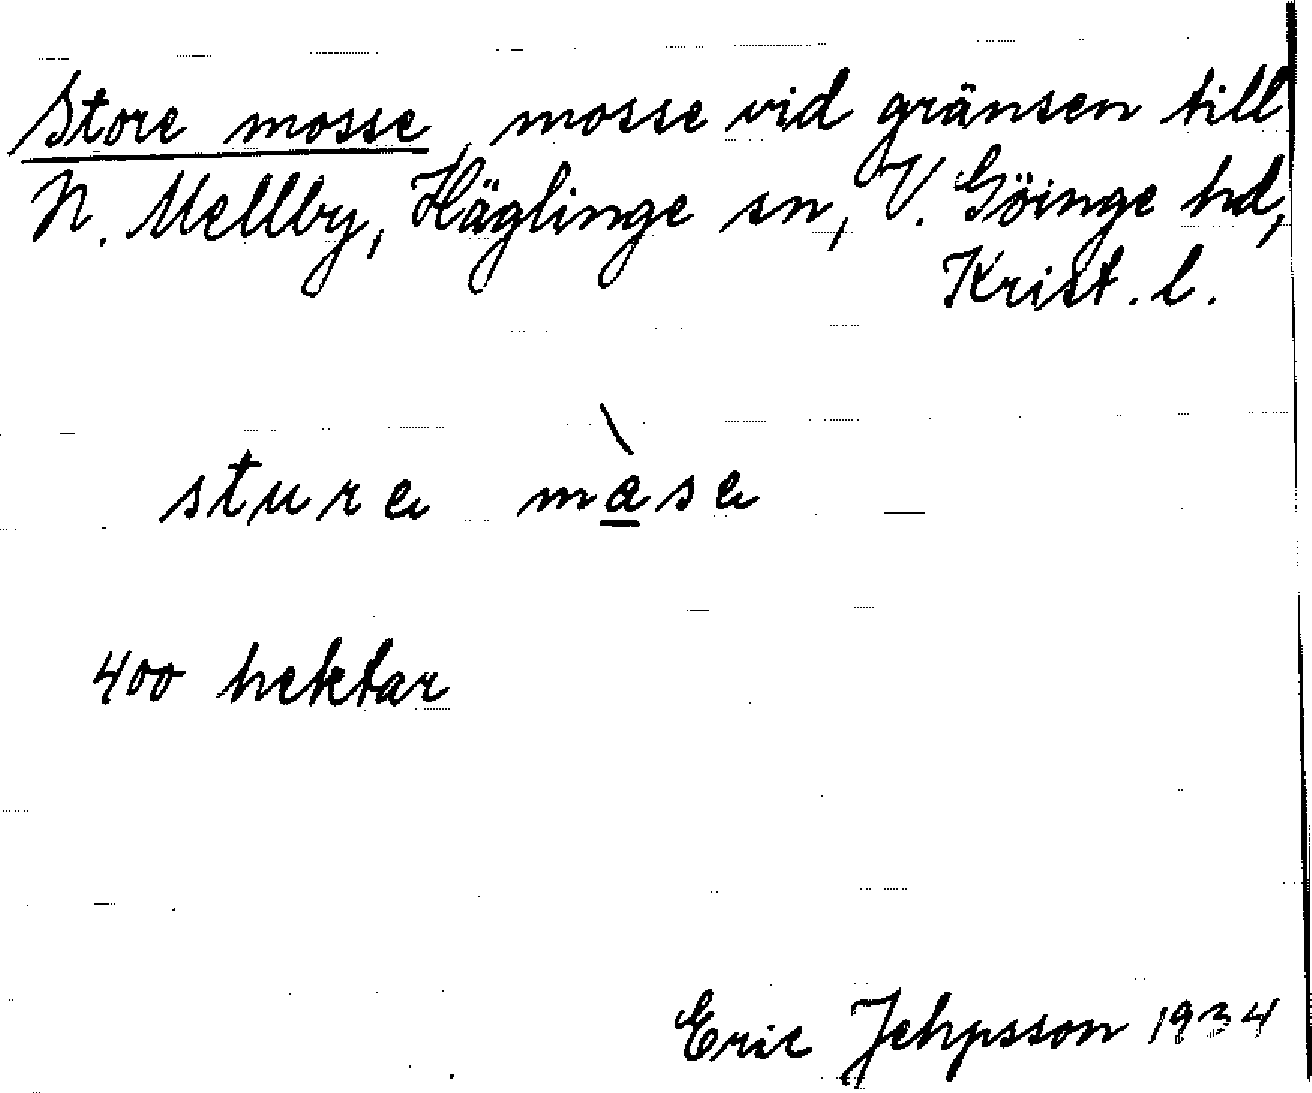 Store mosse, mosse vid gränsen till
N. Mellby, Häglinge sn, V. Göinge hd,
Krist. l.
sture màse
400 hektar
Eric Jehpsson 1934